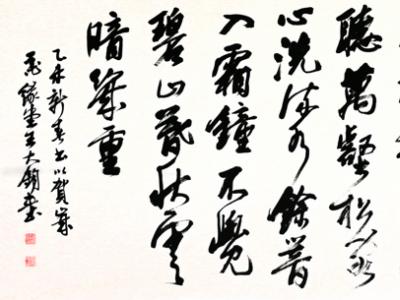 聽萬壑松客
心洗流水餘響
入霜鐘不覺
碧山暮秋雲
暗幾重
乙未新春書以賀歲